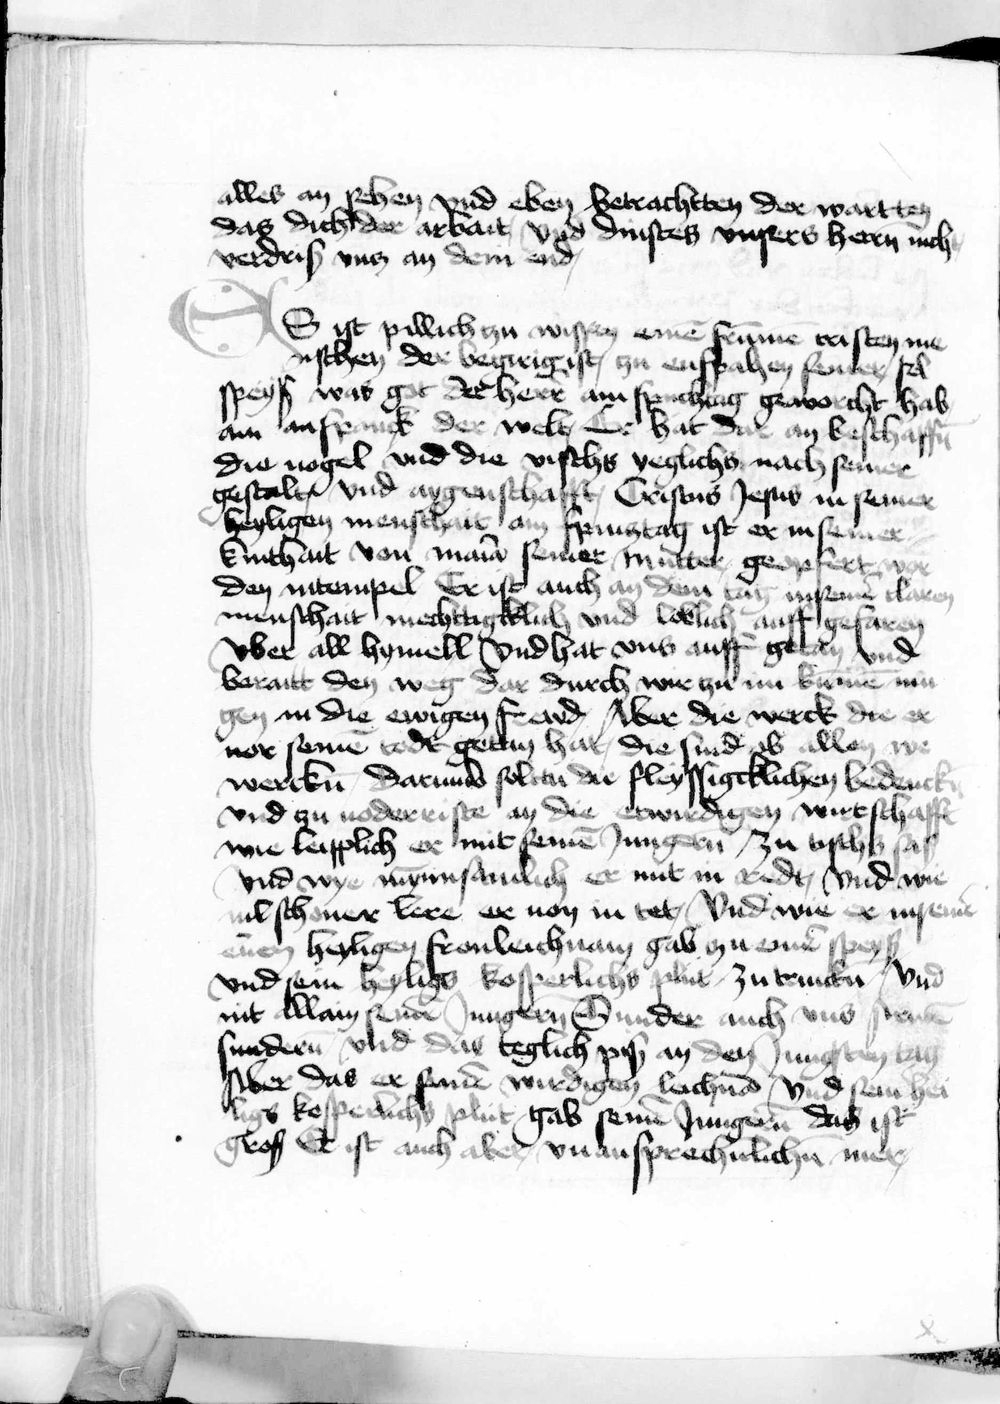 alles an sehen vnd eben betrachtten der wartten
das dich der arbait vnd dinstes vnsers herrn nicht
verdriß vnz an dein end
ES ist pillich zu wissen einē frūmē cristen me
nschen der begirig ist zu enspahen seiner sel
speyß was got der herr am pfincztag geworcht hab
am anfanck der welt Er hat dar an beschaffn̄
die uogel vnd die vischs yeglichs nach seiner
gestalt vnd aygenschafft Cristus Jesus in seiner
heyligen menschait am pfincztag ist er in seiner
kinthait von maria seiner mutter geopfert wor
den in tempel Er ist auch an dem tag in seinē claren
menschait mechttigklich vnd loblich auff gefaren
vber all hymell vnd hat vns auff getan vnd
beraitt den weg dar durch wir zu im kūmē mu
gen in die ewigen frewd Aber die werck die er
uor seinē todt getan hat die sind ob allen we
werckn̄ darumb soltu die fleyssigcklichen bedenckn̄
vnd zu uoderriste an die erwirdigen wirtschafft
wie leipplich er mit seinē Jungern̄ zu tischs saß
vnd wye mynnsamlich er mit in redt vnd wie
uil schoner lere er uon in tet Vnd wie er in seinē
heyligen fronleichnam gab zu einē speyß
vnd sein heyligs kosperlichs plut zu trinckn̄ Vnd
nit allain seinē Jungern̄ Sunder auch vns
sundern̄ vnd das teglich piß an den Jungsten tag
Aber das er seinē wirdigen leichnā vnd sein hei
ligs kosperlichs plut gab seinē Jungern̄ das ist
groß Er ist auch aber vnaussprechnlichn̄ mer